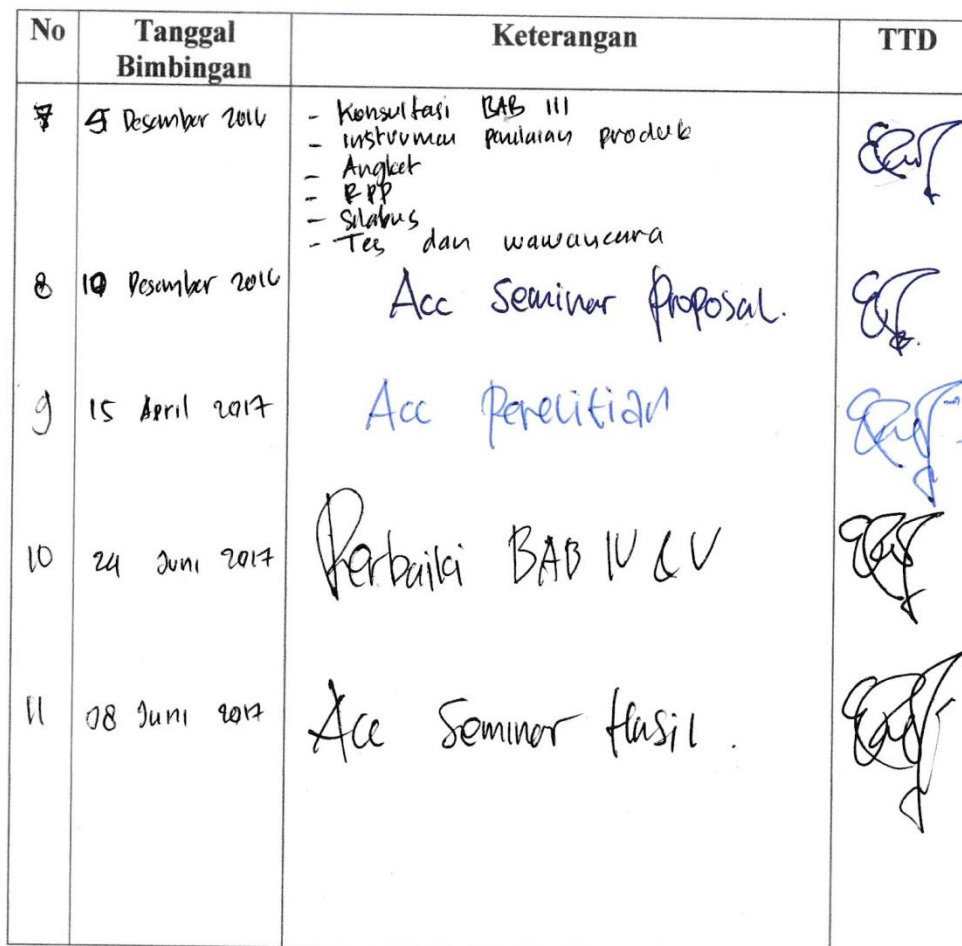 No Tanggal Bimbingan Keterangan TTD
7 5 Desember 2016 - Konsultasi BAB III
- instrumen penilaian produk
- Angket
- RPP
- Silabus
- Tes dan wawancara
8 10 Desember 2016 Acc Seminar Proposal.
9 15 April 2017 Acc Penelitian
10 24 Juni 2017 Perbaiki BAB IV & V
11 08 Juni 2017 Acc Seminar Hasil.